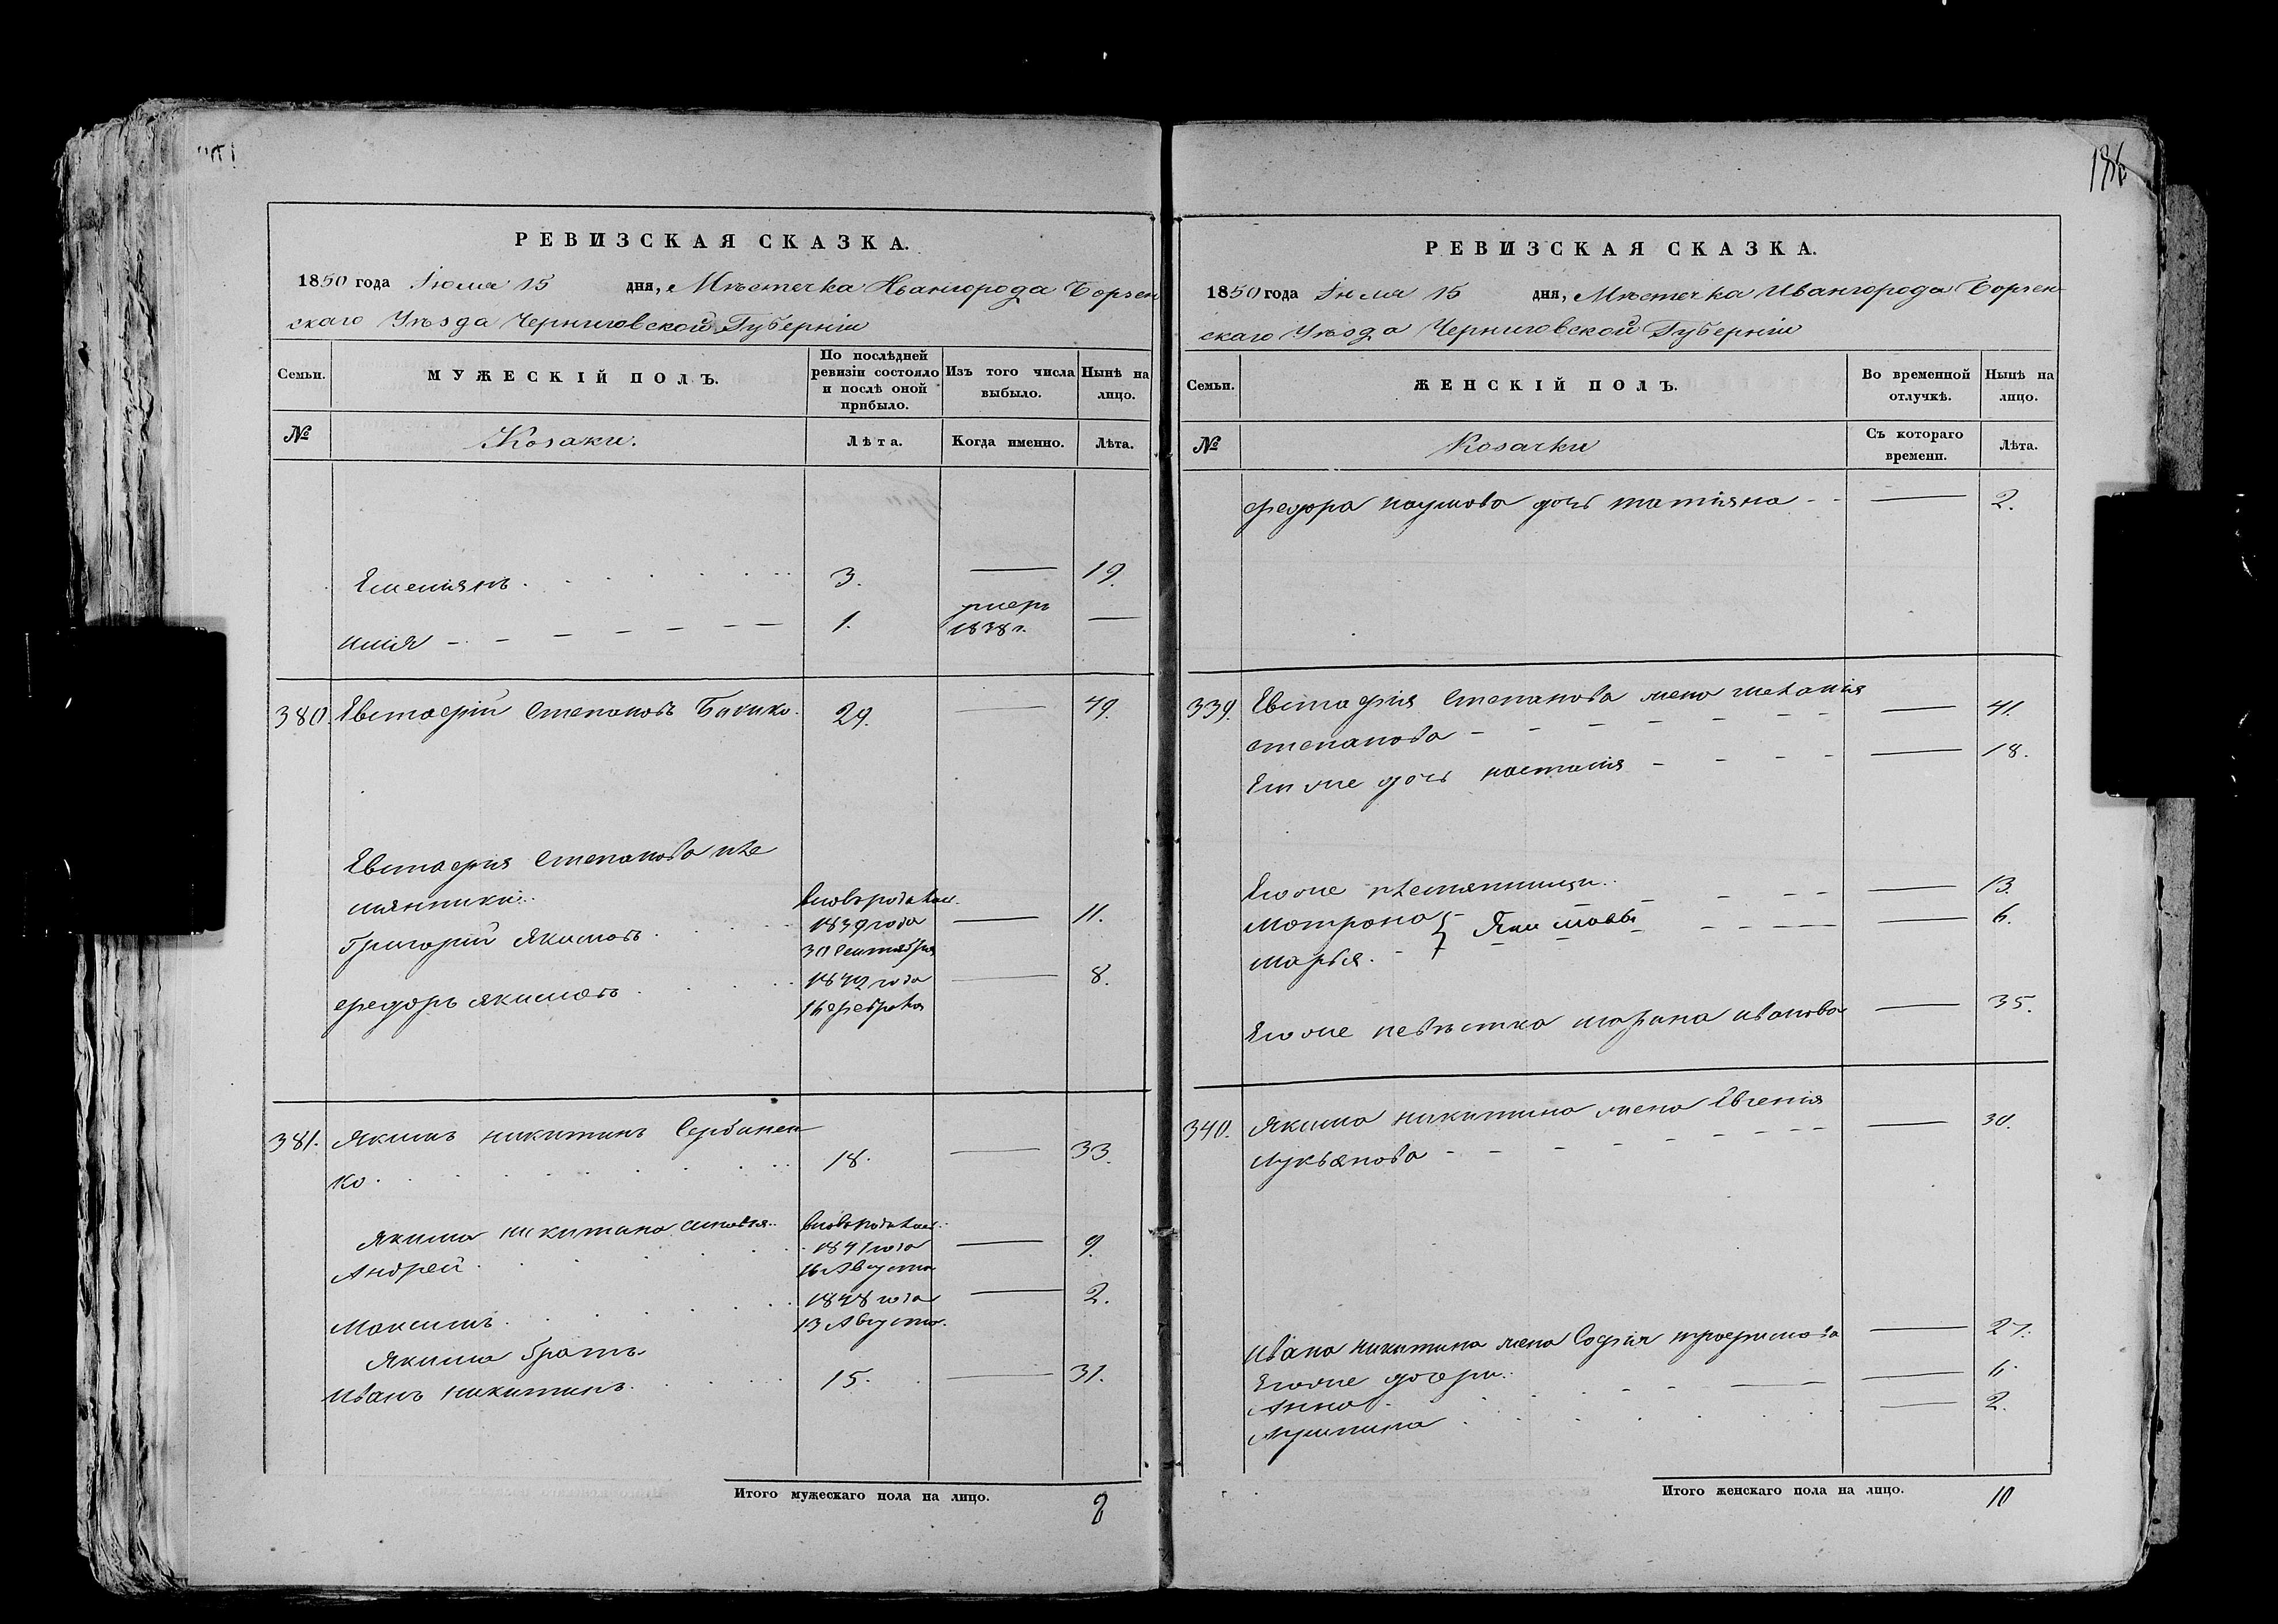 186
РЕВИЗСКАЯ СКАЗКА.
1850 года Іюля 15 дня, Мѣстечка Ивангорода Борзен
скаго Уѣзда Черниговской Губерніи
Семьи.
МУЖЕСКІЙ ПОЛЪ.
По послѣдней ревизіи состояло и послѣ оной прибыло.
Изъ того числа выбыло.
Нынѣ на лицо.
№
Козаки.
Лѣта.
Когда именно.
Лѣта.
Емеліянъ 3. — 19.
Илія 1. умеръ 1838 г. —
380 Евстафій Степановъ 29. — 49.
Евстафія Степанова пле
мянники:
Григорій Якимовъ
вновьрожден.
1839 года
30 Сентября
— 11.
Федоръ Якимовъ
1842 года
16 февраля
— 8.
381. Якимъ Никитинъ Сербинен
ко 18. — 33.
Якима Никитина сыновья
Андрей
вновьрожден.
1841 года
16 Августа
— 9.
Максимъ
1848 года
13 Августа.
— 2.
Якима братъ
Иванъ Никитинъ 15. — 31.
Итого мужескаго пола на лицо. 8
РЕВИЗСКАЯ СКАЗКА.
1850 года Іюля 15 дня, Мѣстечка Ивангорода Борзен
скаго Уѣзда Черниговской Губерніи
Семьи.
ЖЕНСКІЙ ПОЛЪ.
Во временной отлучкѣ.
Нынѣ на лицо.
№
Козачки
Съ котораго времени.
Лѣта.
Федора Наумова дочь Татіяна — 2.
339. Евстафія Степанова жена Меланія
Степанова — 41.
Его же дочь Настасія — 18.
Его же племянницы
Мотрона } Якимовы — 13.
Марья. — 6.
Его же невѣстка Марина Иванова — 35.
340. Якима Никитина жена Евгенія
Лукьянова — 30.
Ивана Никитина жена Софія Трофимова — 27.
Его же дочери:
Анна — 6.
— 2.
Итого женскаго пола на лицо. 10